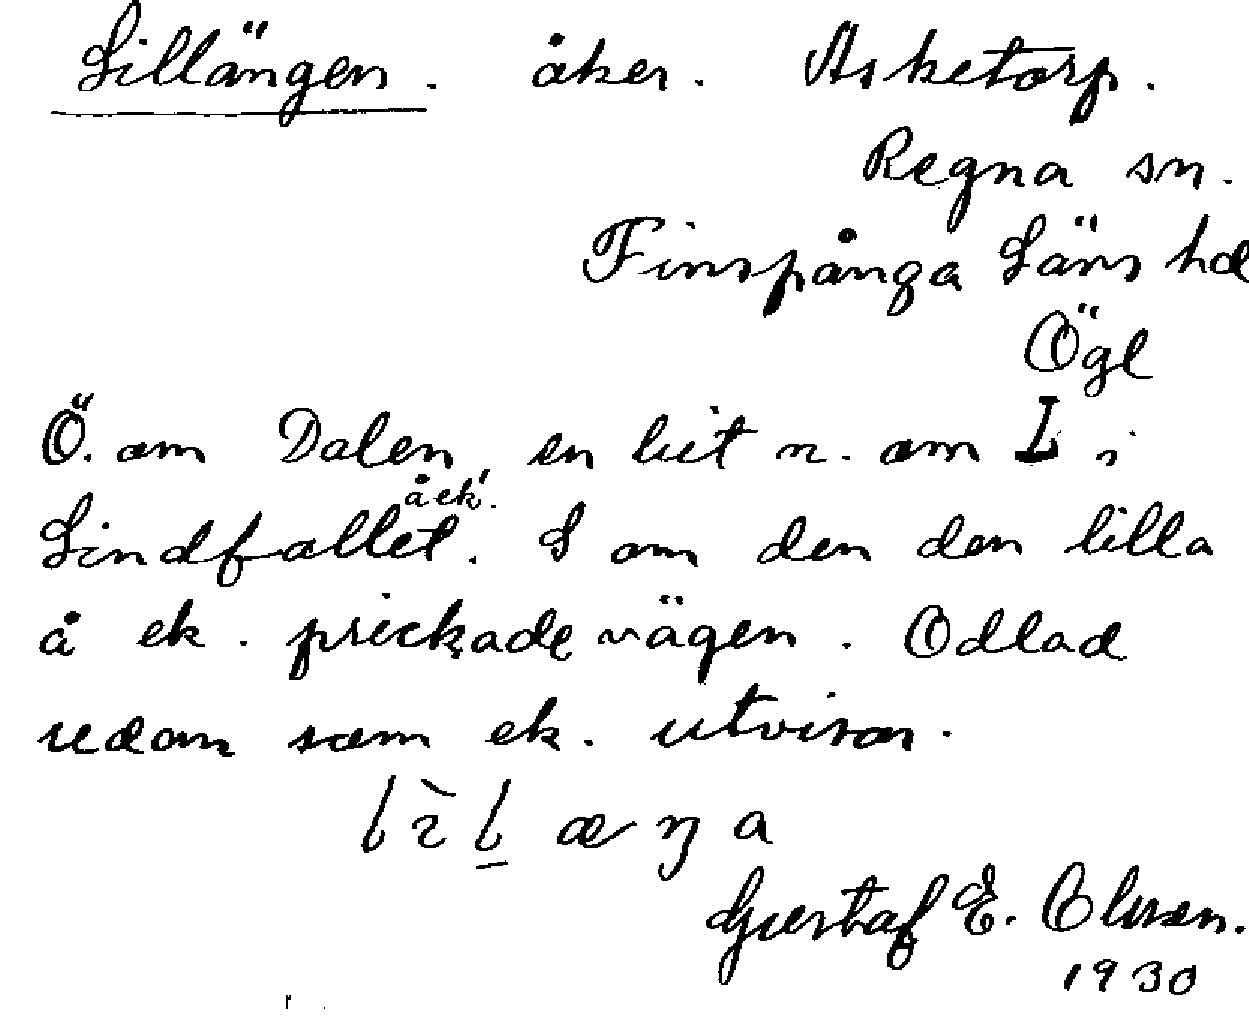 Lillängen. åker. Asketorp.
Regna sn.
Finspånga Läns hd
Ögl
Ö. om Dalen, en bit n. om L i
Lindfallet å ek. S om den den lilla
å ek. prickade vägen. Odlad
redan som ek. utvisar.
Gustaf E. Olsson.
1930